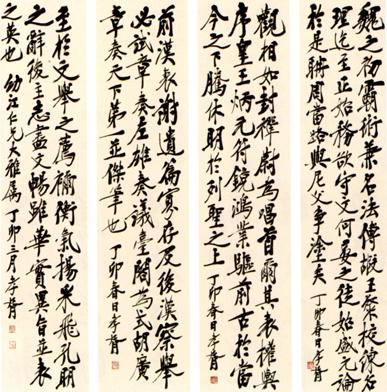 魏之初霸術兼名法傅嘏王粲校練名
理迄至正始務欲守文何晏之徒始盛元論
於是聃周當路與尼父爭塗矣 丁卯春日孝胥
觀相如封禪蔚為唱首爾其表權輿
序皇王炳元符鏡鴻業驅前古於當
今之下騰休明於列聖之上 丁卯春日孝胥
前漢表謝遺篇寡存及後漢察舉
必試章奏左雄奏議臺閣為式胡廣
章奏天下第一並傑筆也 丁卯春日孝胥
至於文舉之薦禰衡氣揚采飛孔明
之辭後主志盡文暢雖華實異旨並表
之英也 幼江仁兄大雅屬 丁卯三月孝胥